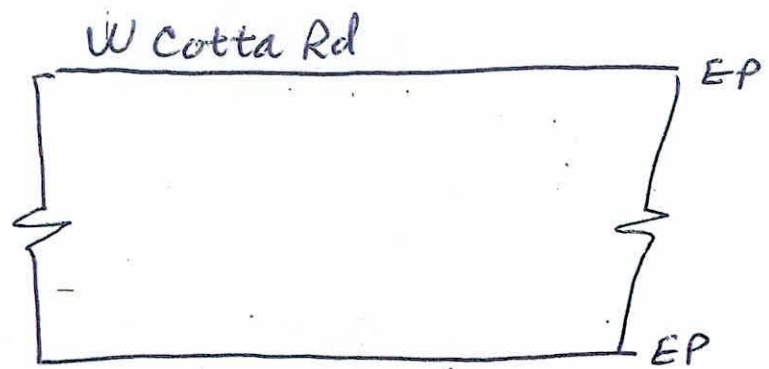 W Cotta Rd
EP
EP